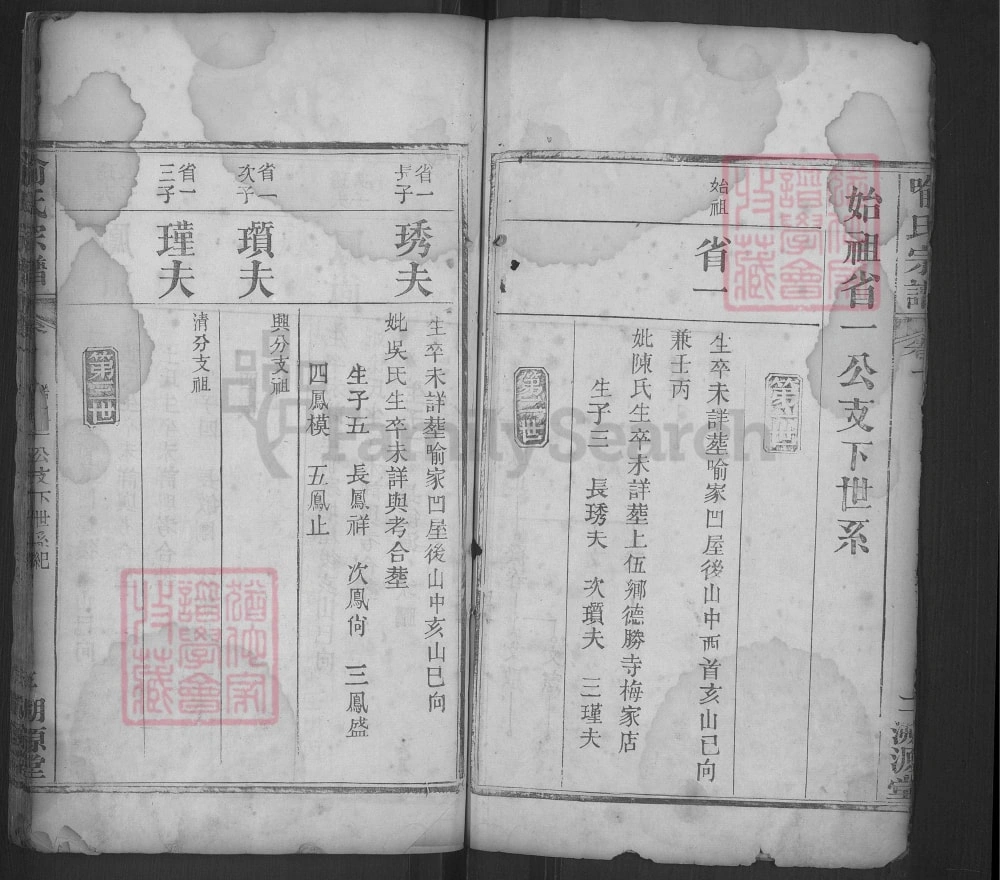 喻氏宗譜
卷一
二
淵源堂
始祖省一公支下世系
第一世
始祖
省一
生卒未詳葬喻家凹屋後山中西首亥山巳向
兼壬丙
妣陳氏生卒未詳葬上伍鄉德勝寺梅家店
生子三 長琇夫 次瓆夫 三瑾夫
第二世
省一
長子
琇夫
生卒未詳葬喻家凹屋後山中亥山巳向
妣吳氏生卒未詳與考合葬
生子五 長鳳祥 次鳳尙 三鳳盛
四鳳模 五鳳止
省一
次子
瓆夫
興分支祖
省一
三子
瑾夫
清分支祖
第三世
喻氏宗譜
公支下世系紀
淵源堂
譜學會
收藏
譜學會
收藏
FamilySearch